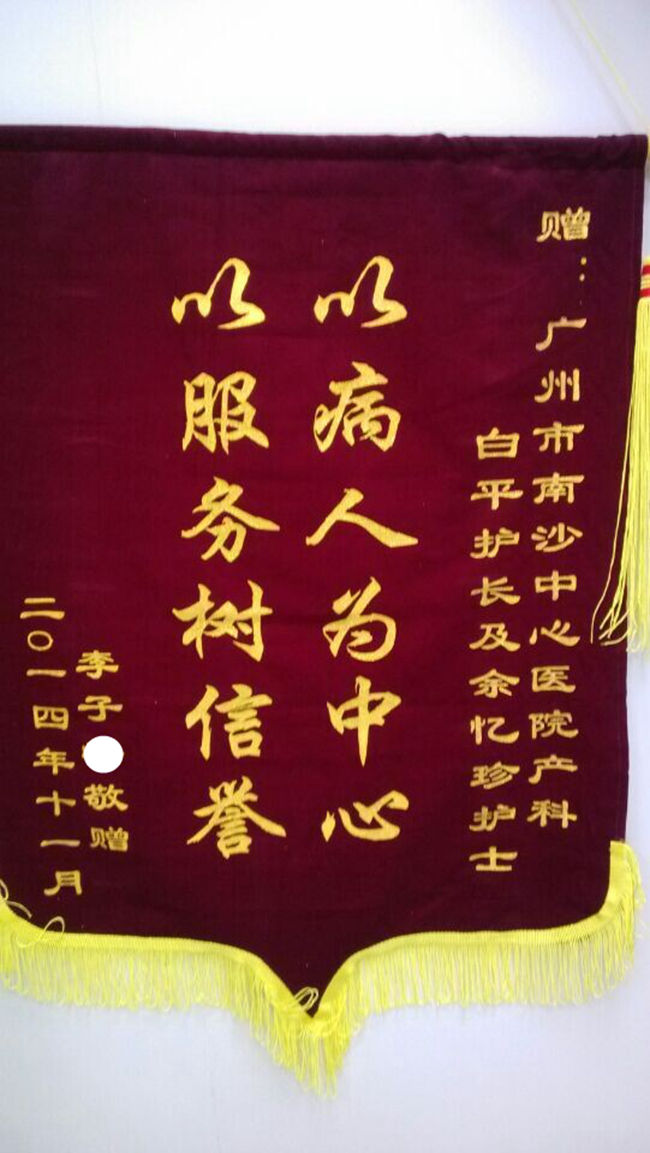 赠：广州市南沙中心医院产科
白平护长及余忆珍护士
以病人为中心
以服务树信誉
李子 敬赠
二〇一四年十一月